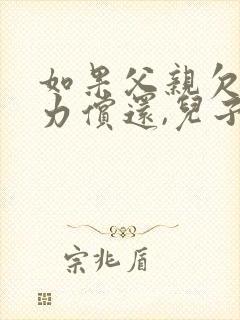 如果父親欠
力償還,兒子
宗兆盾